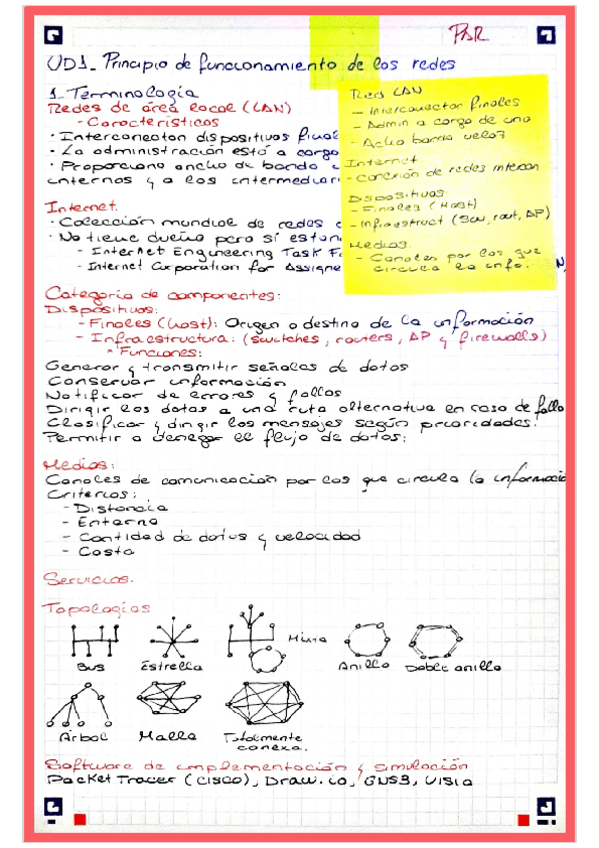 PAR
UD1_ Principio de funcionamiento de los redes
1_ Terminología
Redes de área local (LAN)
- Características
· Interconectan dispositivos final
· La administración está a cargo
· Proporciona ancho de banda
internos y a los intermediari
Internet.
· Colección mundial de redes
· No tiene dueño pero sí están
- Internet Engineering Task F
- Internet Corporation for Assigne
Red LAN
- Interconector finales
- Admin a cargo de una
- Acho banda veloz
Internet
- conexión de redes intercon
Dispositivos
- Finales (Host)
- Infraestruct (Sw, rout, AP)
Medios.
- Canales por los que
circula la info.
N,
Categoría de componentes:
Dispositivos:
- Finales (host): Origen o destino de la información
- Infraestructura: (switches, routers, AP y firewalls)
* Funciones:
Generar y transmitir señales de datos
Conservar información
Notificar de errores y fallos
Dirigir los datos a una ruta alternativa en caso de fallo
Clasificar y dirigir los mensajes según prioridades.
Permitir o denegar el flujo de datos.
Medios:
Canales de comunicación por los que circula la informacio
Criterios:
- Distancia
- Entorno
- Cantidad de datos y velocidad
- Costo
Servicios.
Topologías
Mixta
Bus
Estrella
Anillo
Doble anillo
Árbol
Malla
Totalmente
conexa.
Software de implementación y simulación
Packet Tracer (CISCO), Draw.io, GNS3, Visio